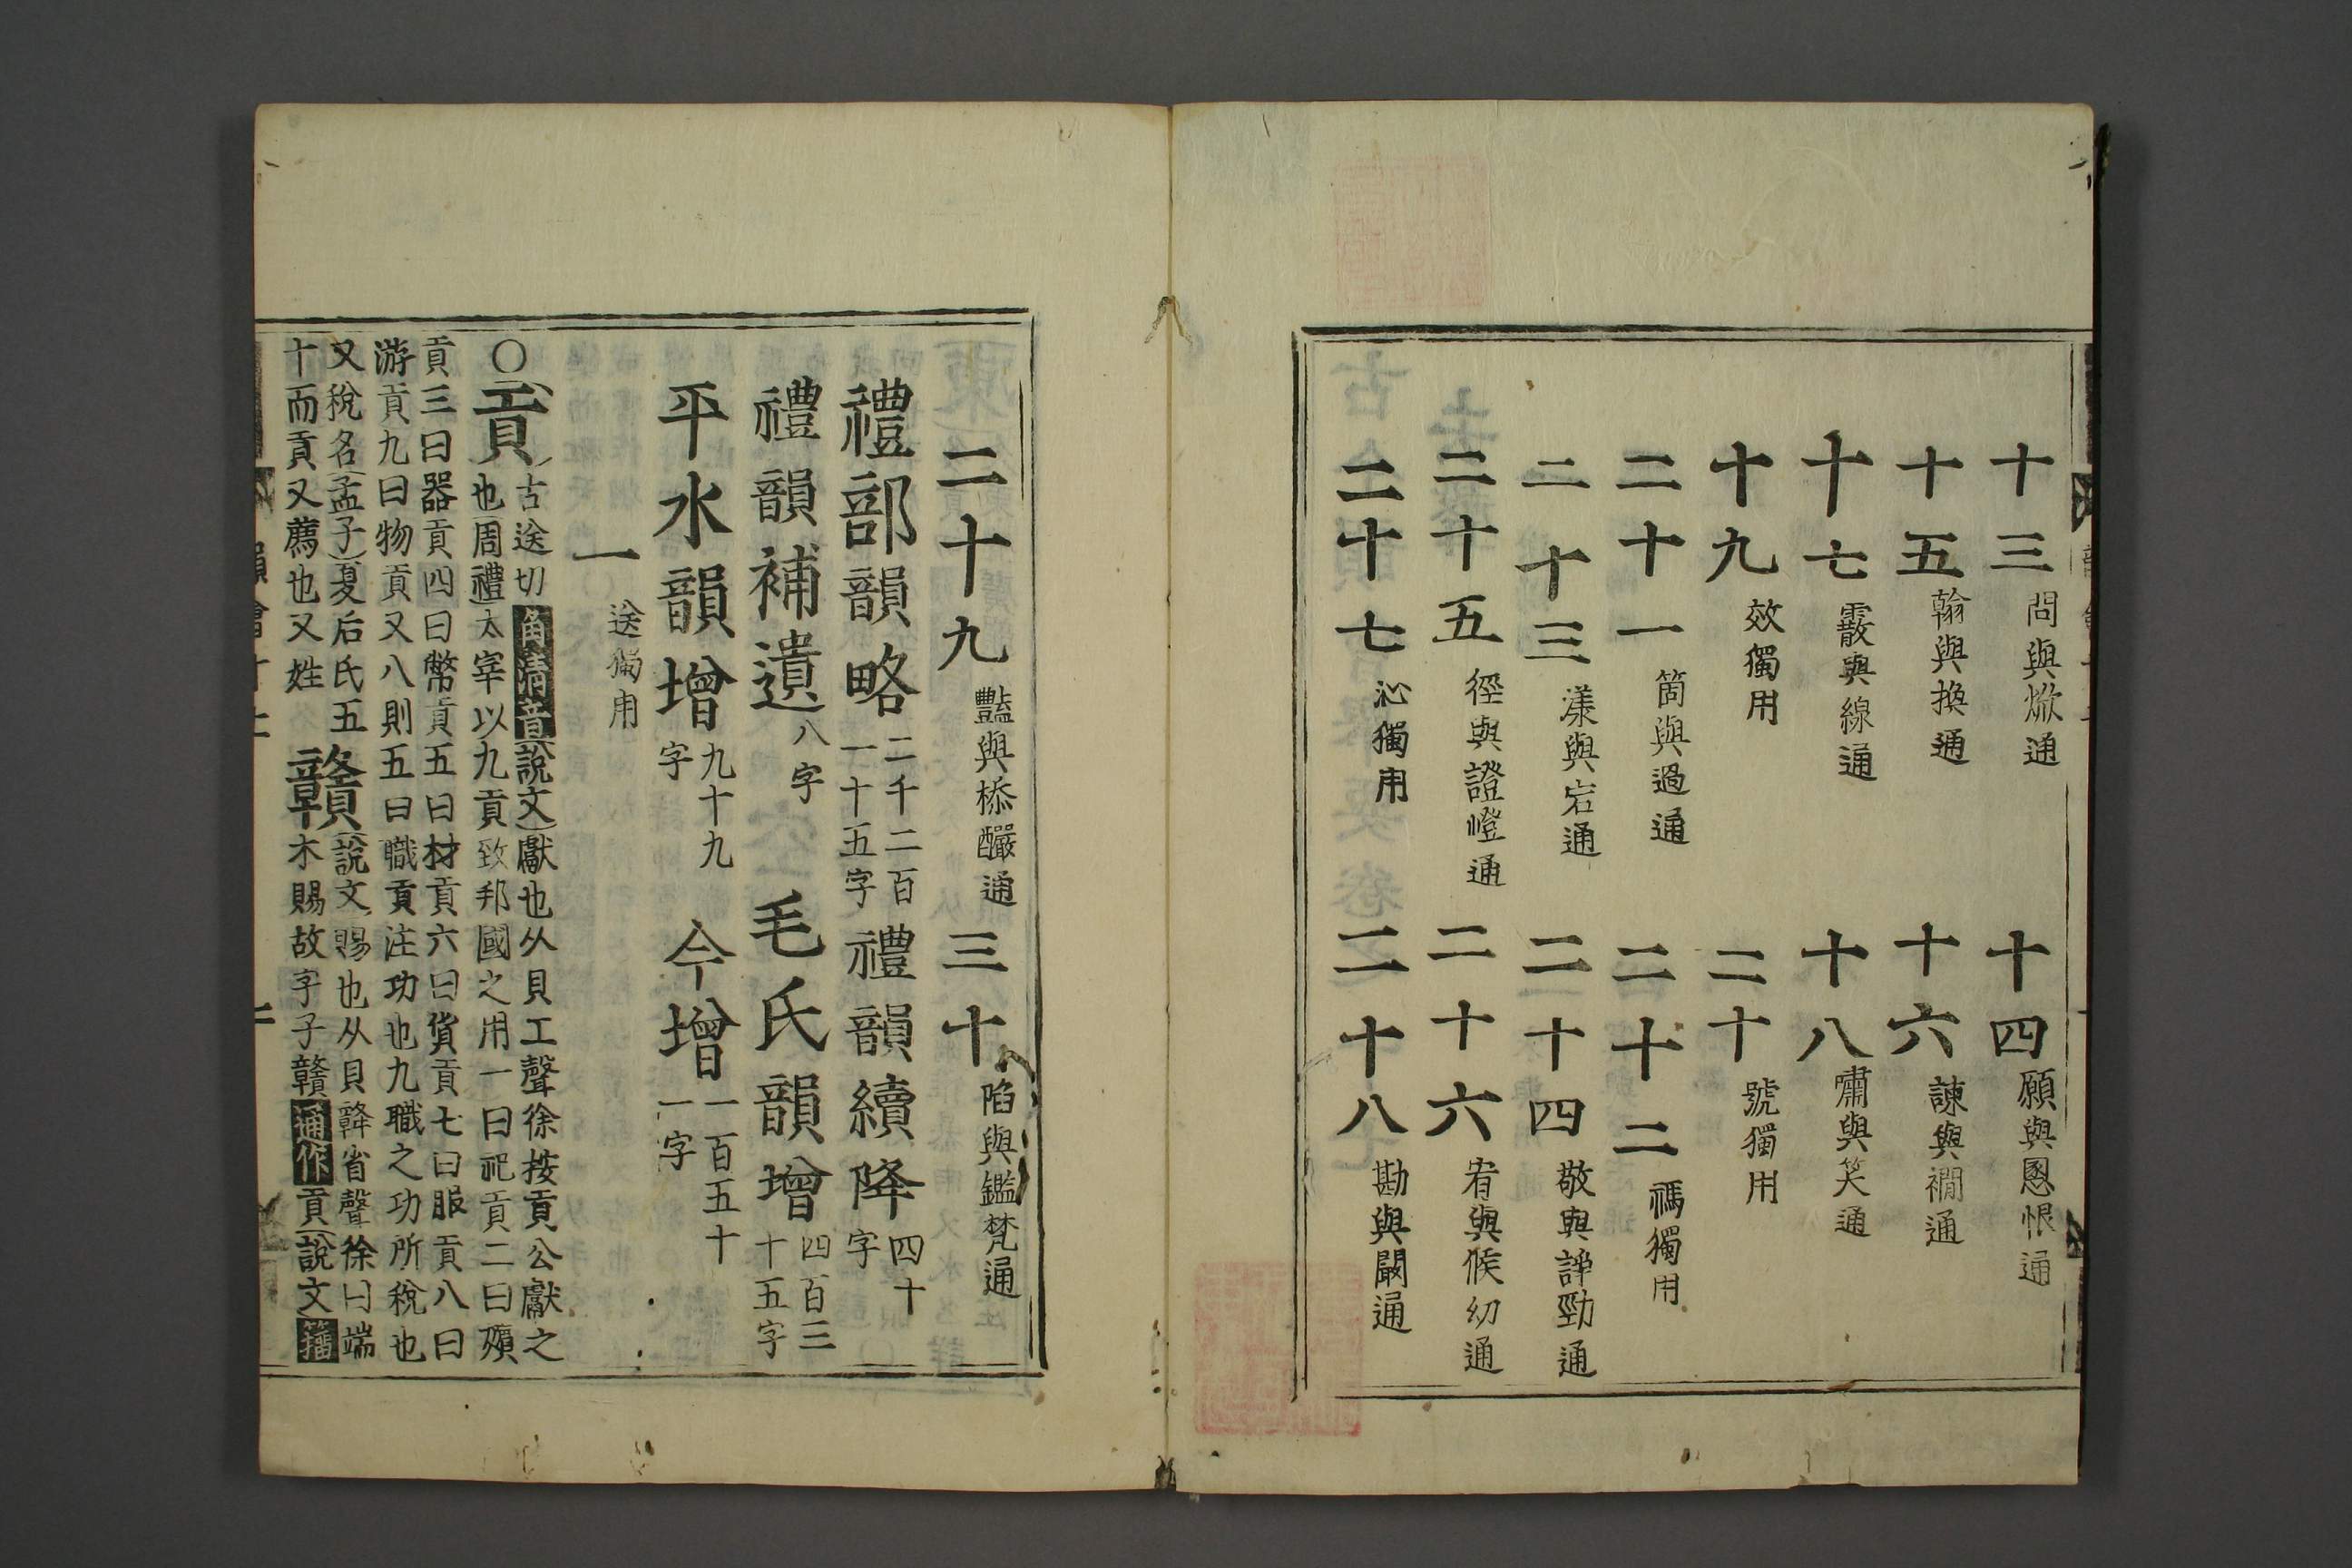 十三問與焮通　十四願與慁恨通
十五翰與換通　十六諫與襉通
十七霰與線通　十八嘯與笑通
十九效獨用　二十號獨用
二十一箇與過通　二十二禡獨用
二十三漾與宕通　二十四敬與諍勁通
二十五徑與證嶝通　二十六宥與候幼通
二十七沁獨用　二十八勘與闞通
二十九豔與㮇釅通　三十陷與鑑梵通
禮部韻略二千二百一十五字　禮韻續降四十字
禮韻補遺八字　毛氏韻增四百三十五字
平水韻增九十九字　今增一百五十一字
一送獨用
○貢古送切角清音說文獻也从貝工聲徐按貢公獻之
也周禮太宰以九貢致邦國之用一曰祀貢二曰殯
貢三曰器貢四曰幣貢五曰材貢六曰貨貢七曰服貢八曰
游貢九曰物貢又八則五曰職貢注功也九職之功所稅也
又稅名孟子夏后氏五
十而貢又薦也又姓
贛說文賜也从貝竷省聲徐曰端
木賜故字子贛通作貢說文籀